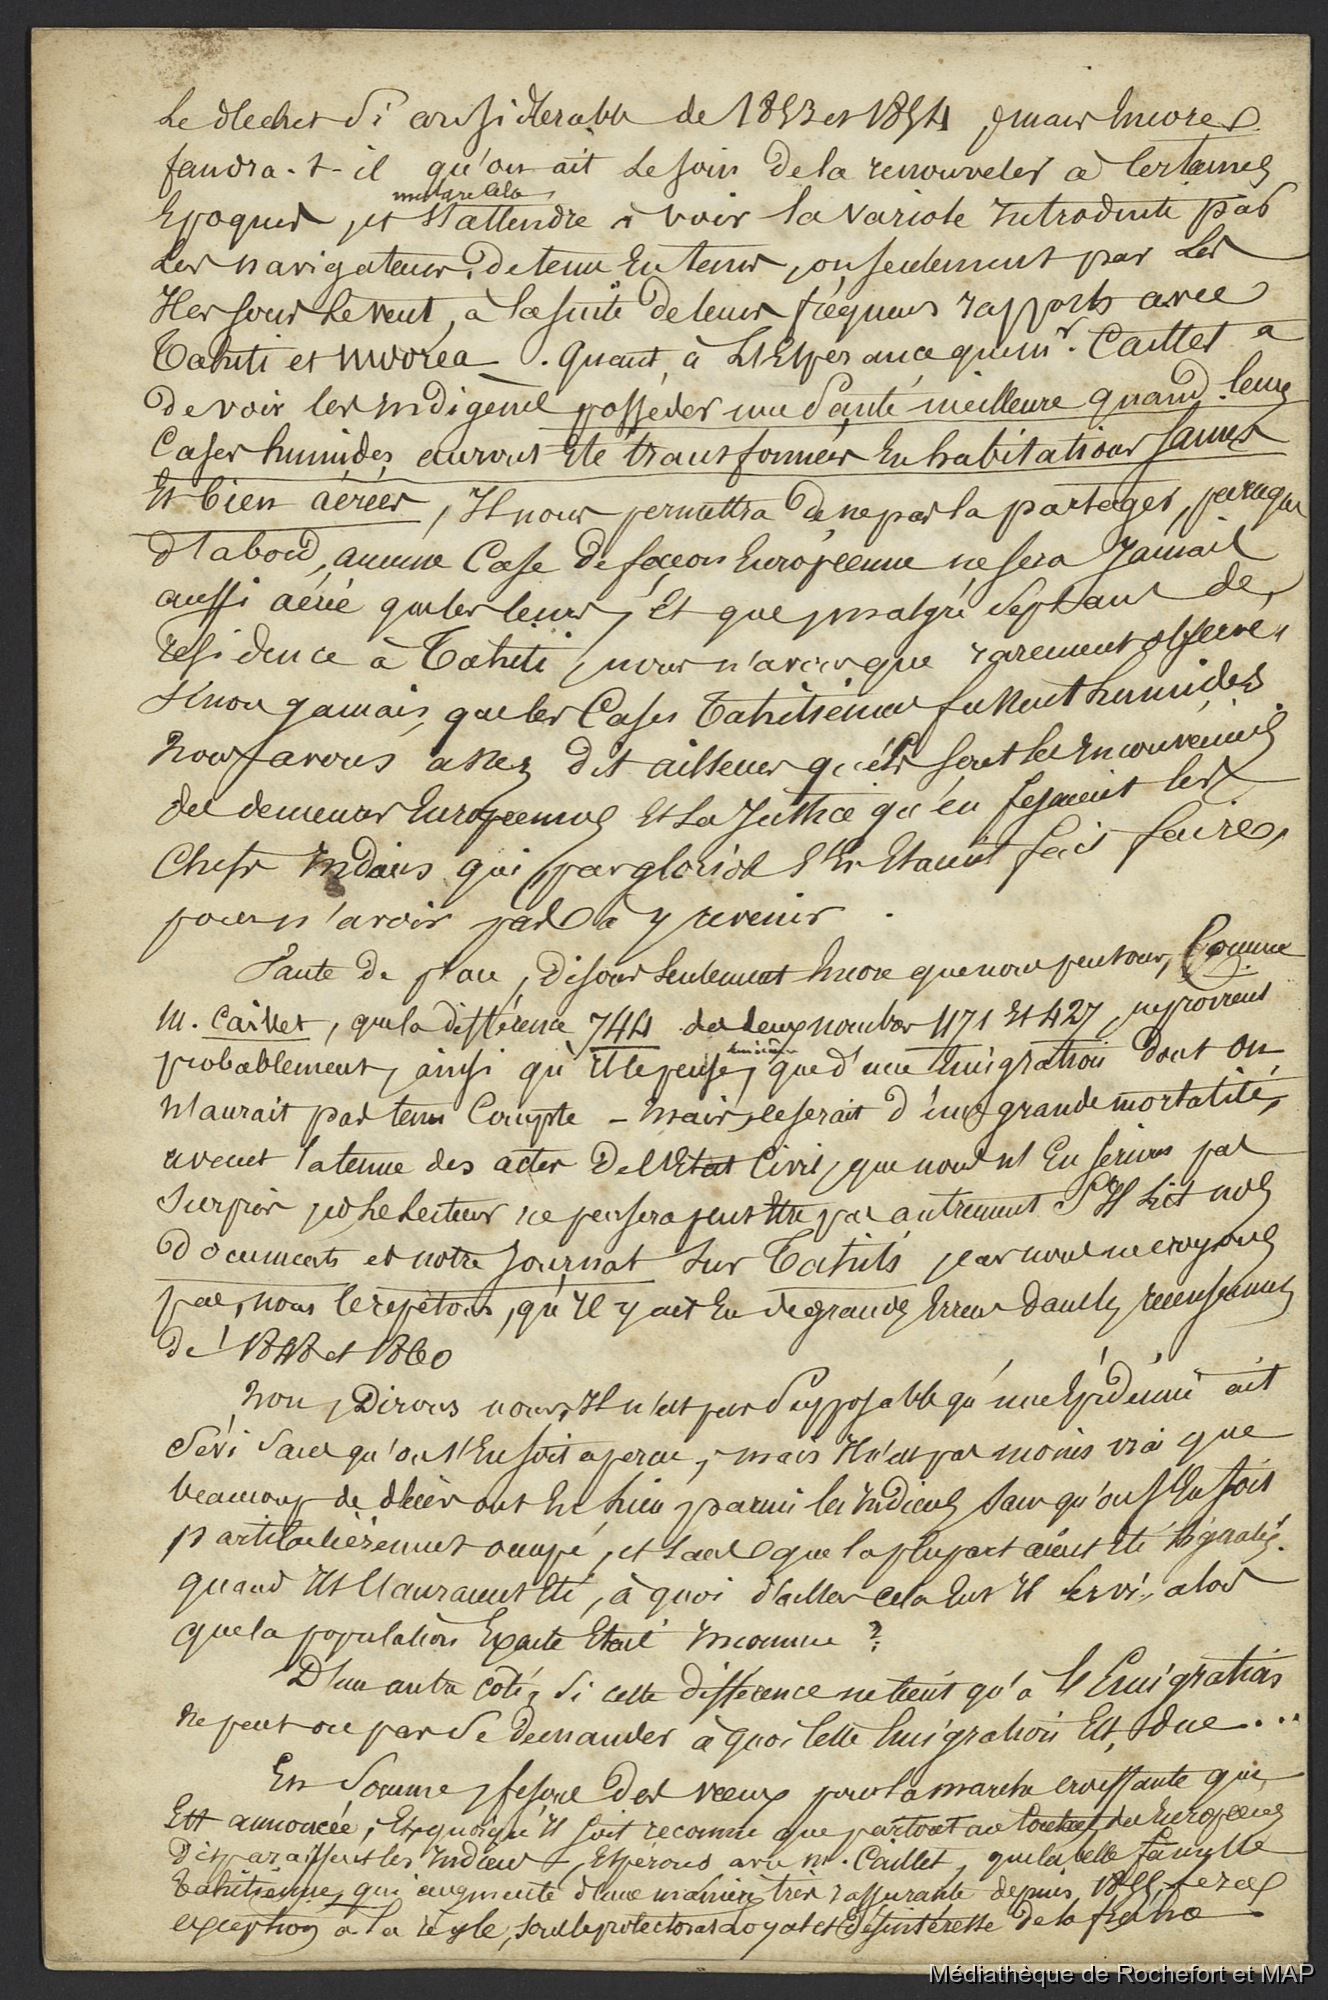 le dechet si considerable de 1853 et 1854, mais encore
faudra-t-il qu'on ait le soin de la renouveler à certaines
Epoques, et s'attendre à voir la variole introduite par
les navigateurs, de tems en tems, non seulement par les
Iles sous le vent, à la suite de leurs fréquens rapports avec
Tahiti et moorea. Quant, à l'Espérance que mr. Caillet a
de voir les indigènes posséder une santé meilleure quand leurs
Cases humides auront été transformées en habitations saines
et bien aérées, Il nous permettra de ne pas la partager, parceque
d'abord, aucune Case de façon Européenne ne sera jamais
aussi aérée que les leurs, Et que, malgré sept ans de
résidence à Tahiti, nous n'avons que rarement observé,
sinon jamais, que les Cases Tahitiennes fussent humides
Nous avons assez dit ailleurs quels sont les inconvéniens
des demeures Européennes Et la justice qu'en fesaient les
Chefs indiens qui, par gloriole s'en Etaient fait faire,
pour n'avoir pas à y revenir.
Faute de place, disons seulement encore que nous pensons, Comme
M. Caillet, que la différence 744 des deux nombres 1171 Et 427, ne provient
probablement, ainsi qu'il le pense, que d'une Emigration dont on
n'aurait pas tenu Compte - mais, ce serait d'une grande mortalité,
avant la tenue des actes de l'Etat Civil, que nous n'en serions pas
surpris, et le lecteur ne pensera peut Etre pas autrement S'Il lit nos
documents et notre journal sur Tahiti, car nous ne croyons
pas, nous le repétons, qu'Il y ait Eu de grandes Erreurs dans les recensemens
de 1848 et 1860
Non, Dirons nous, Il n'est pas supposable qu'une Epidémie ait
sévi sans qu'on s'En soit aperçu, mais Il n'est pas moins vrai que
beaucoup de décès ont Eu lieu, parmi les indiens, sans qu'on s'En soit
particulièrement occupé, et sans que la plupart aient été signalés.
quand Ils l'auraient Eté, à quoi d'ailleurs cela Eut Il servi, alors
que la population Exacte Etait inconnue ?
D'un autre côté, si cette différence ne tient qu'à l'Emigration
ne peut on pas se demander à quoi cette Emigration Est due...
En somme, fesons des vœux pour la marche croissante qui
Est annoncée, Et, quoiqu'Il soit reconnu que partout au contact des Européens
disparaissent les indiens, Espérons avec M. Caillet, que la belle famille
Tahitienne, qui augmente d'une manière très rassurante depuis 1855, fera
exception à la règle, sous le protectorat loyal et désintéressé de la france
Médiathèque de Rochefort et MAP